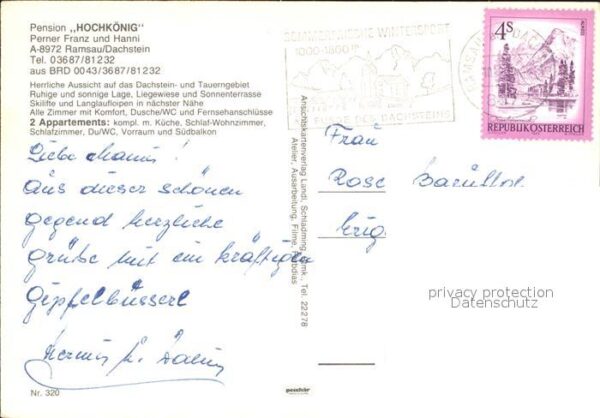 Pension „HOCHKÖNIG“
Perner Franz und Hanni
A-8972 Ramsau/Dachstein
Tel. 03687/81232
aus BRD 0043/3687/81232
Herrliche Aussicht auf das Dachstein- und Tauerngebiet
Ruhige und sonnige Lage, Liegewiese und Sonnenterrasse
Skilifte und Langlaufloipen in nächster Nähe
Alle Zimmer mit Komfort, Dusche/WC und Fernsehanschlüsse
2 Appartements: kompl. m. Küche, Schlaf-Wohnzimmer,
Schlafzimmer, Du/WC, Vorraum und Südbalkon
Liebe
aus dieser schönen
gegend herzliche
grüße mit ein kräftigen
gipfelbüsserl
Nr. 320
Ansichtskartenverlag Landl, Schladming, Tel. 22278
Atelier, Ausarbeitung, Filme, Farbdias
SOMMERFRISCHE WINTERSPORT
1000-1800 m
FUSSE DES DACHSTEINS
RAMSAU
4 S
REPUBLIK ÖSTERREICH
Frau
Rose
privacy protection
Datenschutz